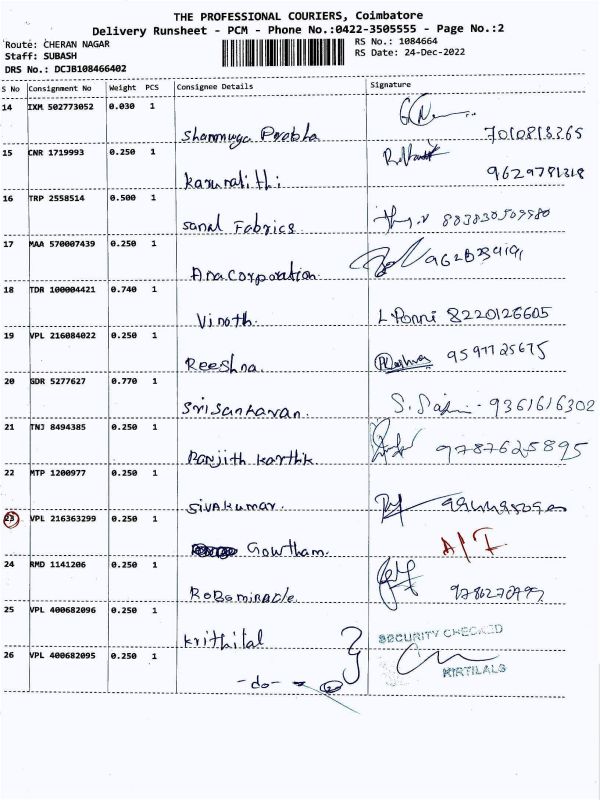 THE PROFESSIONAL COURIERS, Coimbatore
Delivery Runsheet - PCM - Phone No.:0422-3505555 - Page No.:2
Route: CHERAN NAGAR
RS No.: 1084664
Staff: SUBASH
RS Date: 24-Dec-2022
DRS No.: DCJB108466402
S No Consignment No Weight PCS Consignee Details Signature
14 IXM 502773052 0.030 1
Shanmuga Prabha 7010813265
15 CNR 1719993 0.250 1
Karunalithi 9629781318
16 TRP 2558514 0.500 1
Sanal Fabrics
17 MAA 570007439 0.250 1
Ana Corporation
18 TDR 100004421 0.740 1
Vinoth. L Ponni 8220126605
19 VPL 216084022 0.250 1
Reeshna. 9597725675
20 GDR 5277627 0.770 1
Srisankaran. 9361616302
21 TNJ 8494385 0.250 1
Ranjith Karthik. 9787625895
22 MTP 1200977 0.250 1
Sivakumar.
23 VPL 216363299 0.250 1
Gowtham. A/F
24 RMD 1141206 0.250 1
Robomiracle.
25 VPL 400682096 0.250 1
Krithilal SECURITY CHECKED
26 VPL 400682095 0.250 1
-do- KIRTILALS